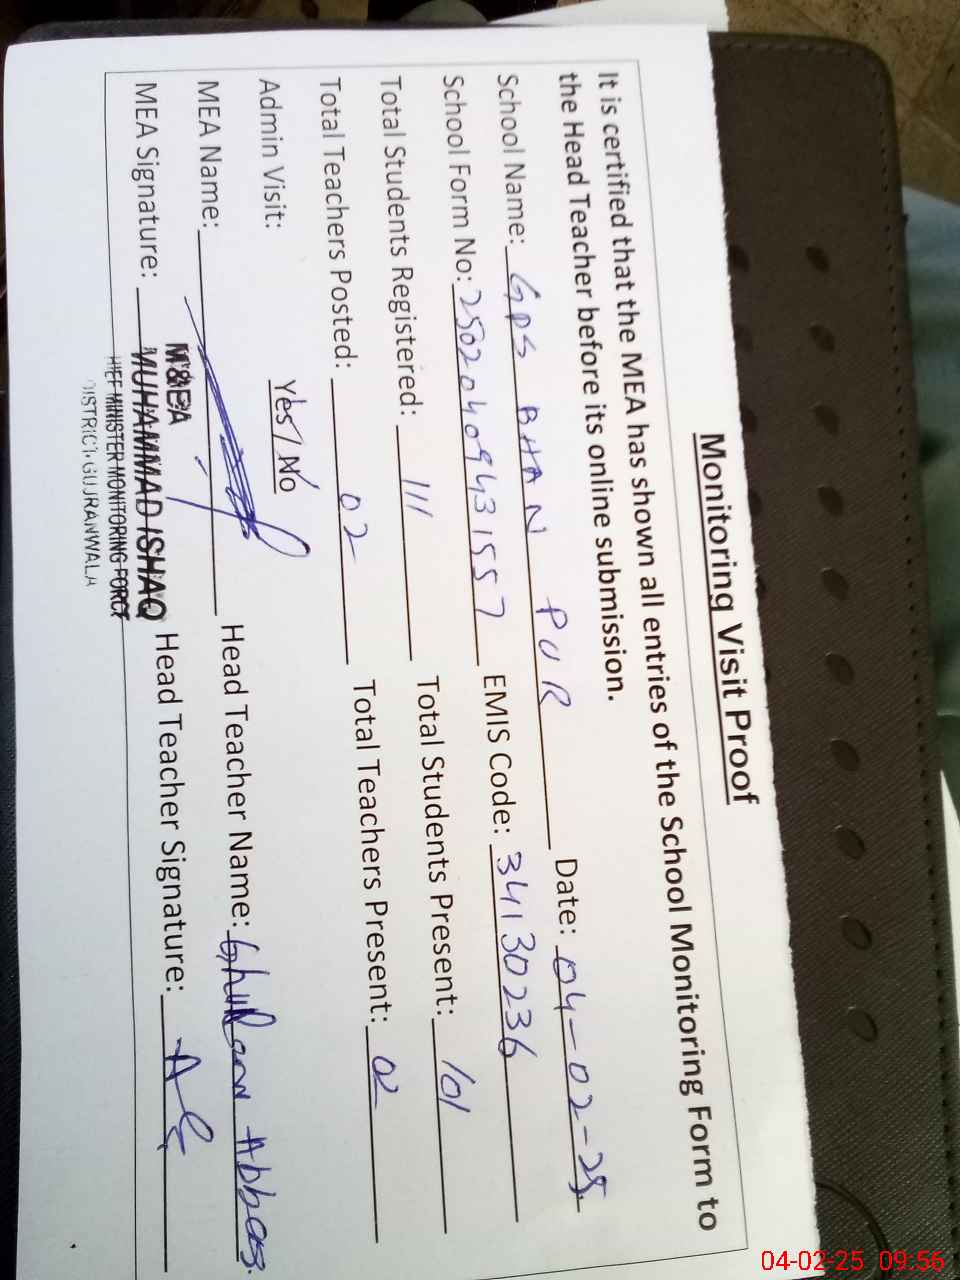 Monitoring Visit Proof
It is certified that the MEA has shown all entries of the School Monitoring Form to
the Head Teacher before its online submission.
School Name: GPS BHAN PUR Date: 04-02-25
School Form No: 2502040943157 EMIS Code: 34130236
Total Students Registered: 111 Total Students Present: 101
Total Teachers Posted: 02 Total Teachers Present: 02
Admin Visit: Yes/No
MEA Name: Head Teacher Name: Ghulam Abbas
MEA Signature: Head Teacher Signature:
M&EA
MUHAMMAD ISHAQ
HIEF MINISTER MONITORING FORCE
DISTRICT, GUJRANWALA
04-02-25 09:56